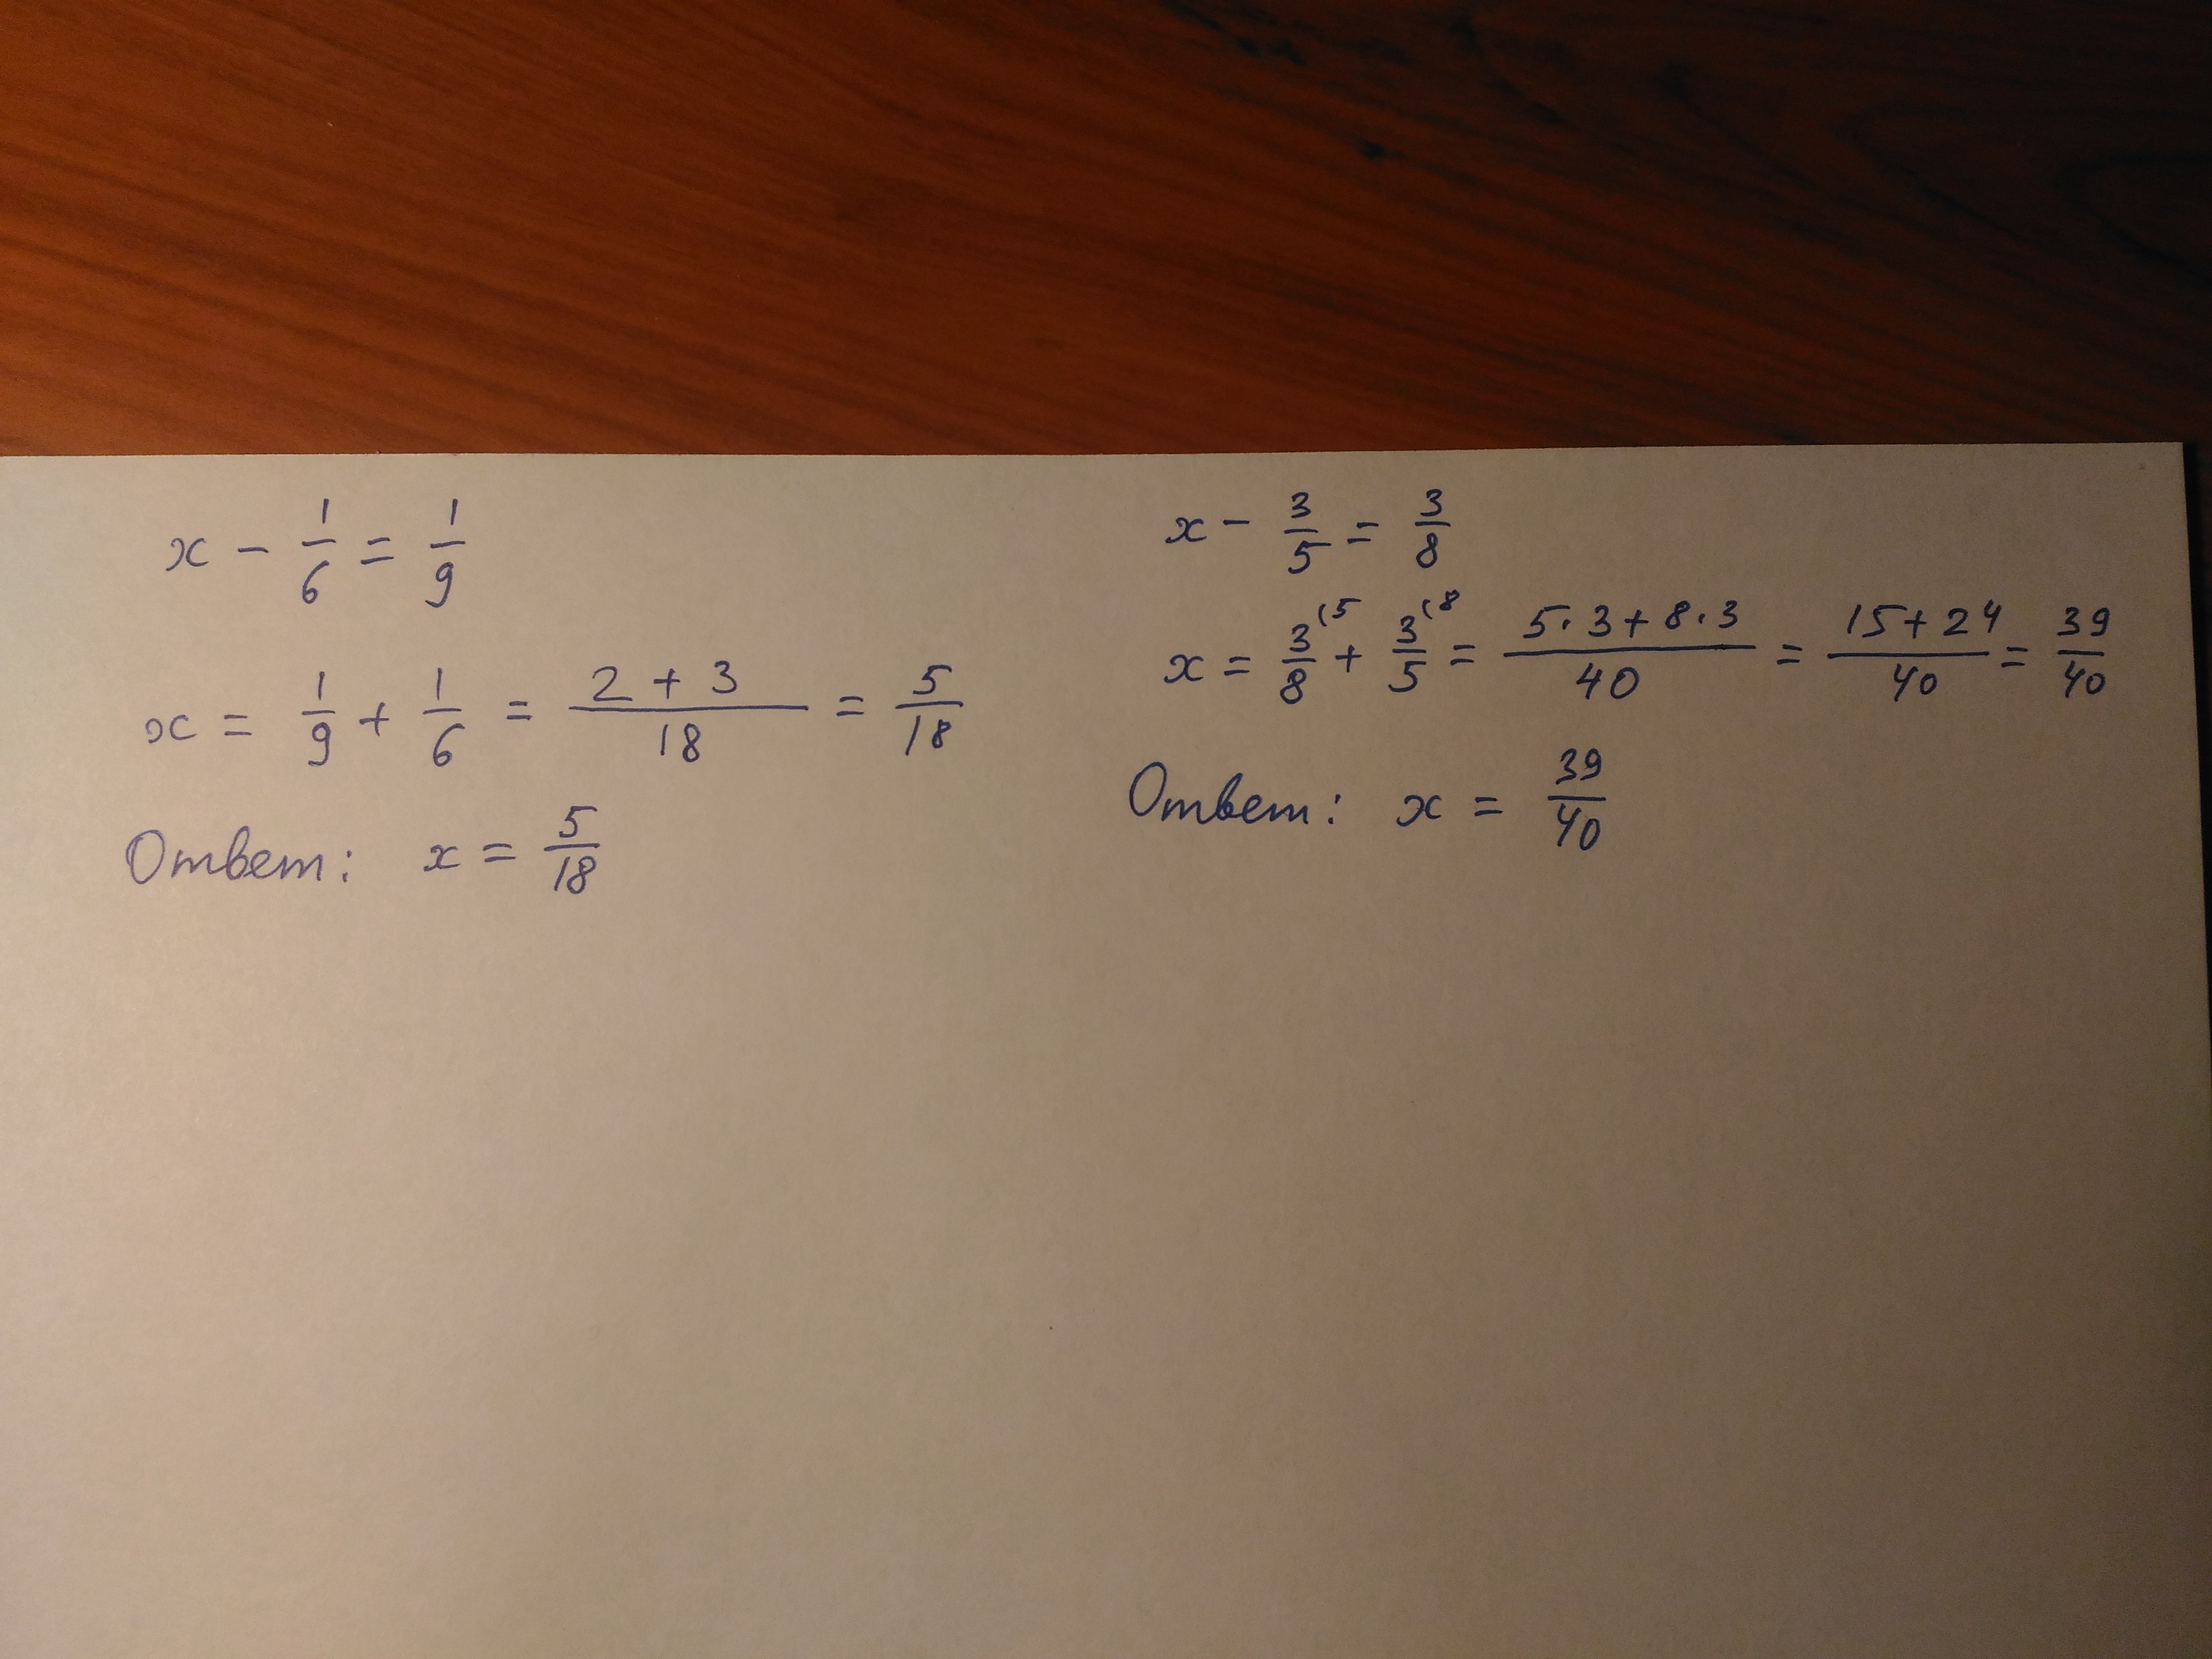 x - 1/6 = 1/9
x = 1/9 + 1/6 = (2 + 3)/18 = 5/18
Ответ: x = 5/18
x - 3/5 = 3/8
x = 3/8 (5 + 3/5 (8 = (5·3 + 8·3)/40 = (15 + 24)/40 = 39/40
Ответ: x = 39/40